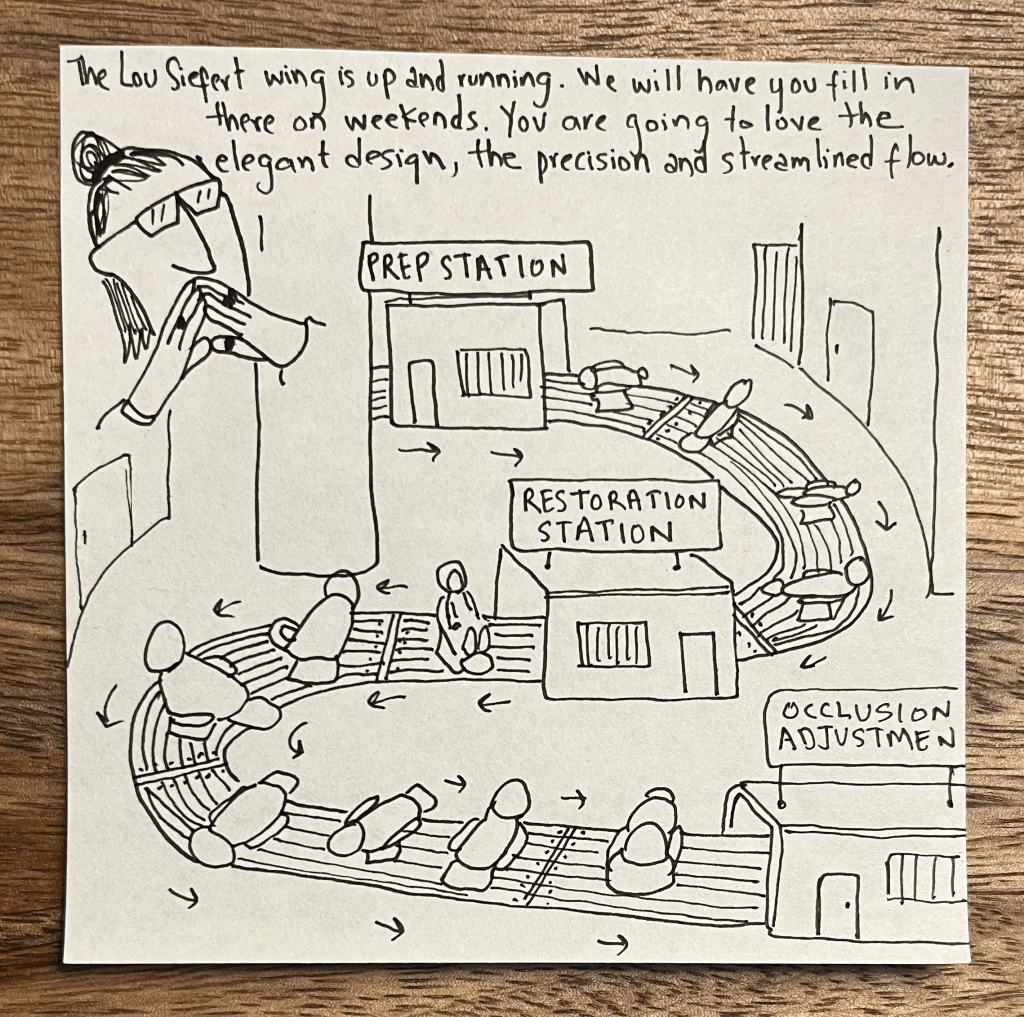 The Lou Siefert wing is up and running. We will have you fill in
there on weekends. You are going to love the
elegant design, the precision and streamlined flow.
PREP STATION
RESTORATION
STATION
OCCLUSION
ADJUSTMEN